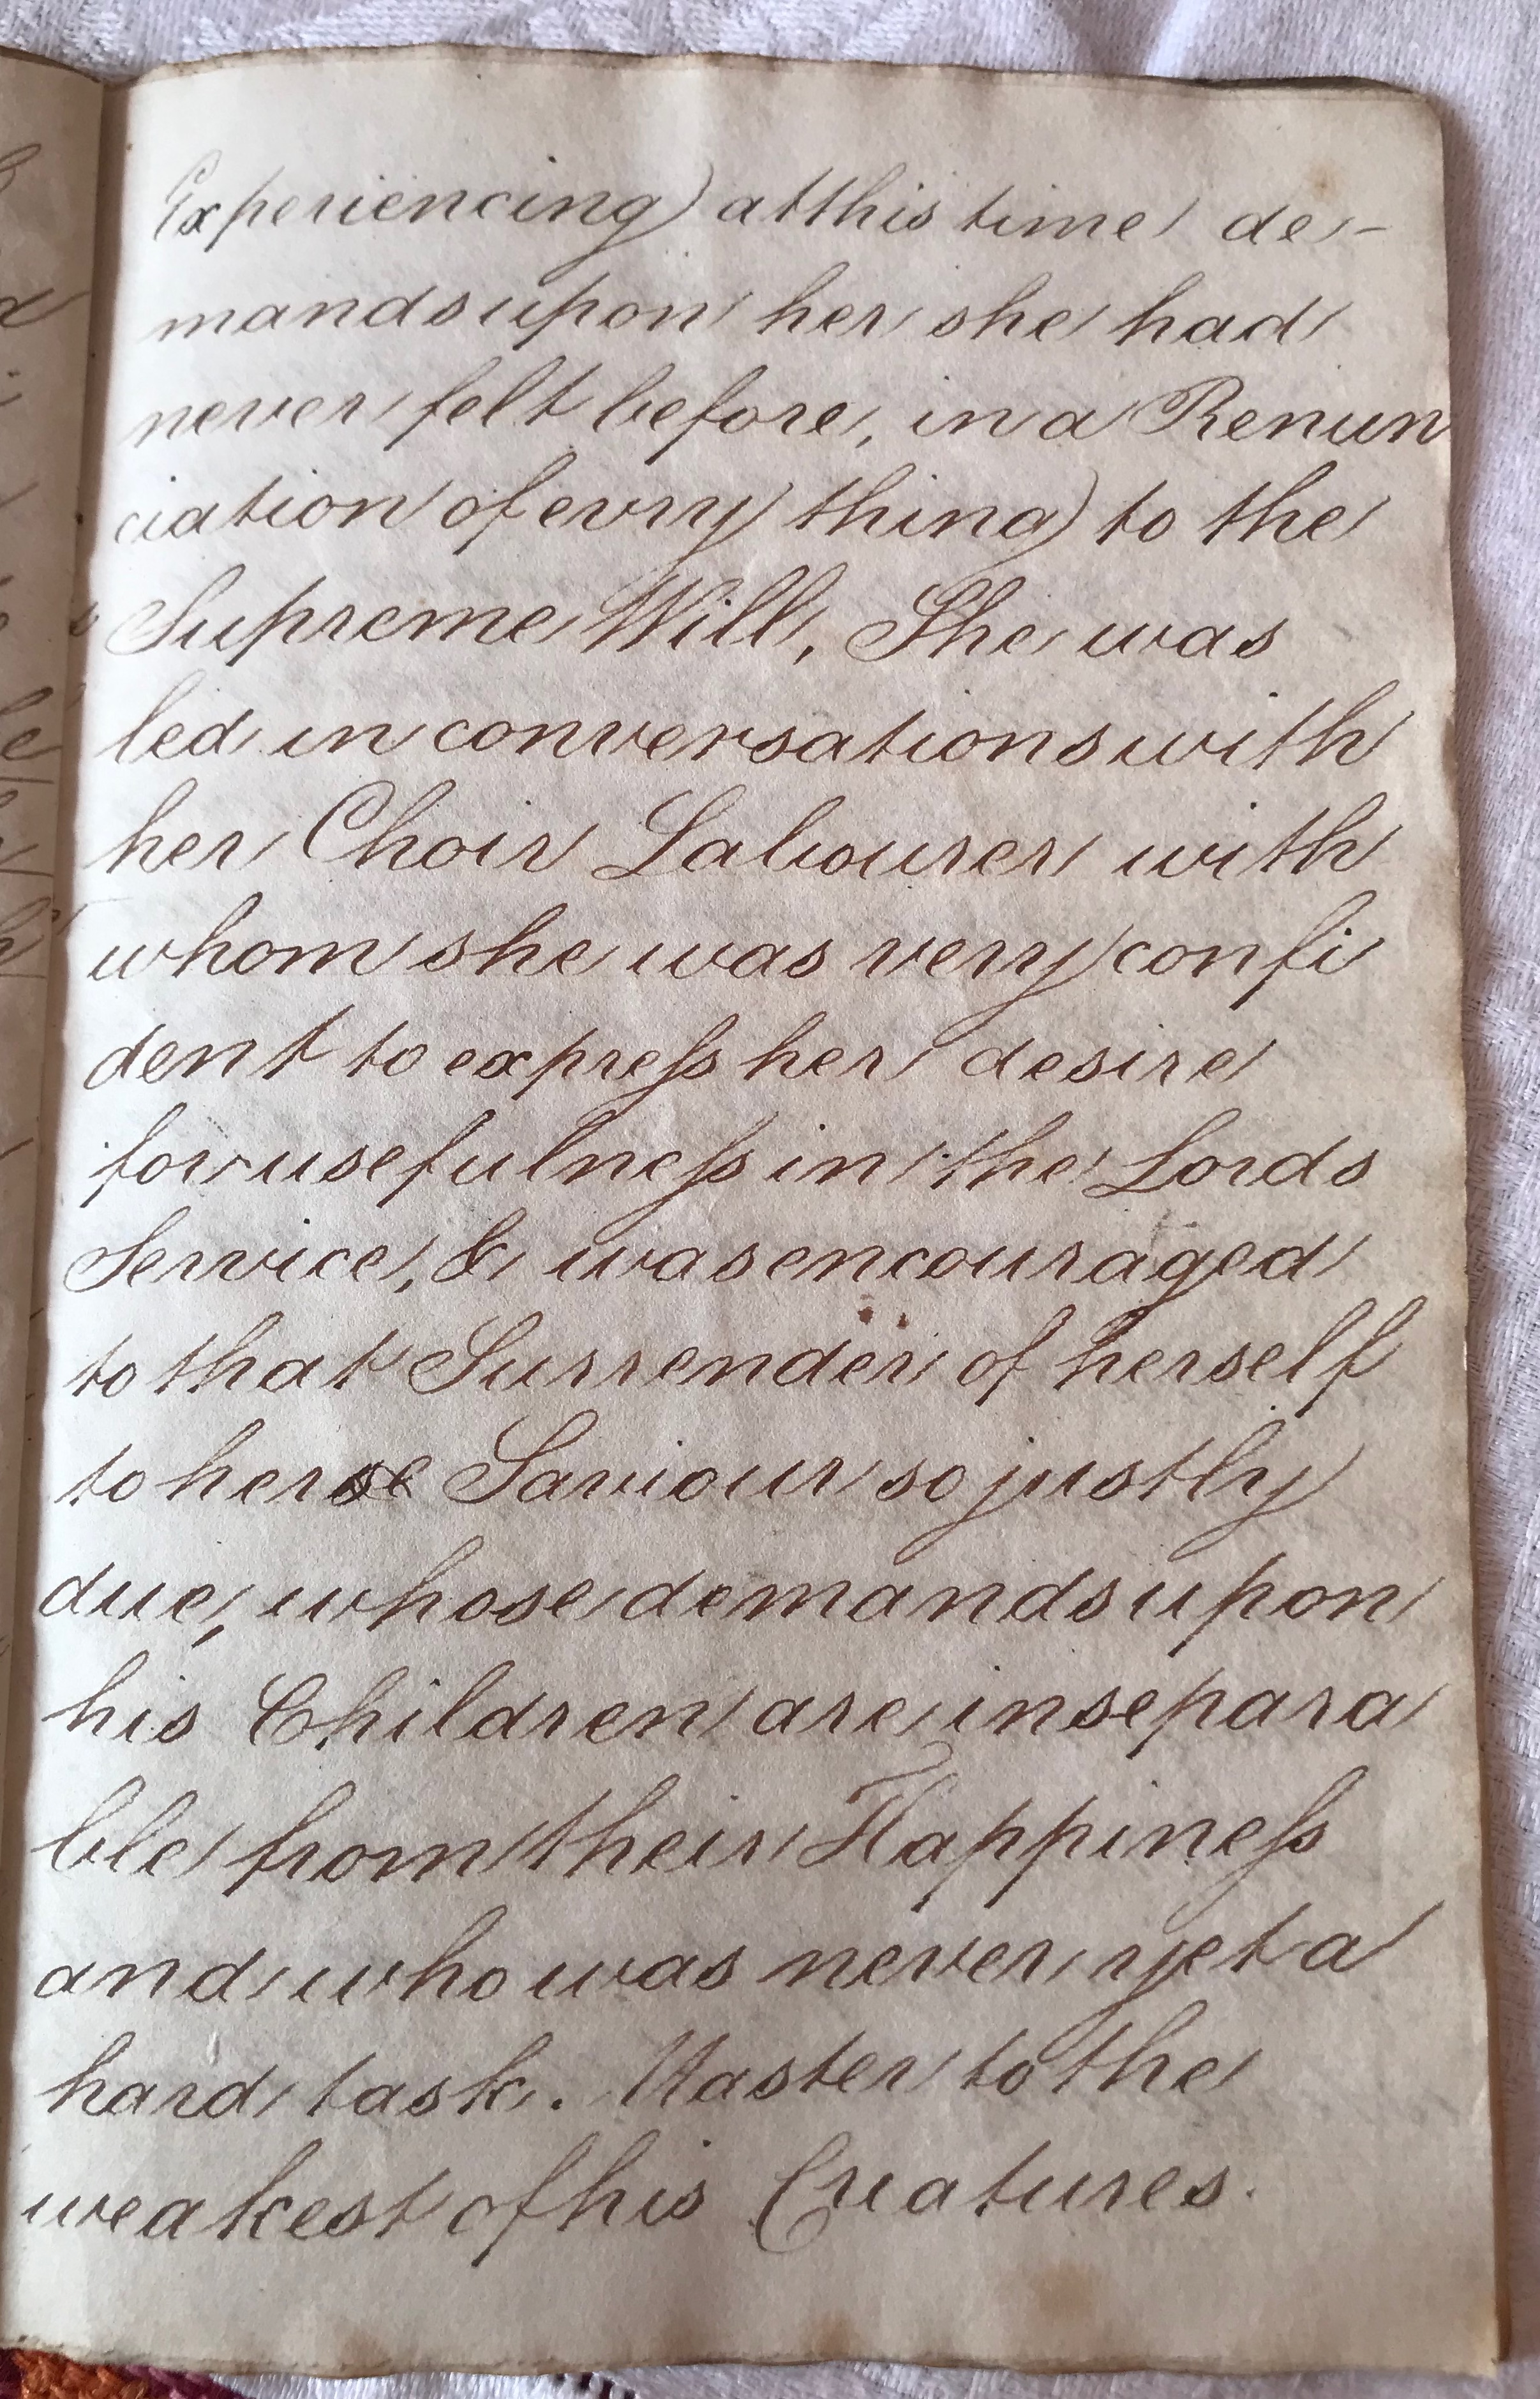 Experiencing at this time de-
mands upon her she had
never felt before, in a Renun
ciation of evry thing to the
Supreme Will, She was
led in conversations with
her Choir Labourer with
whom she was very confi
dent to expreſs her desire
for usefulneſs in the Lords
Service, & was encouraged
to that Surrender of herself
to her Saviour so justly
due, whose demands upon
his Children are insepara
ble from their Happineſs
and who was never yet a
hard task. Master to the
weakest of his Creatures.